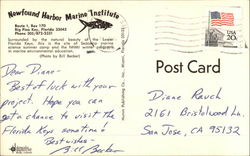 Newfound Harbor Marine Institute
Route 3, Box 170
Big Pine Key, Florida 33043
Phone: 305/872-2331
Surrounded by the natural beauty of the Lower
Florida Keys, this is the site of Seacamp marine
science summer camp and the NHMI winter program
in marine environmental education.
(Photo by Bill Becker)
Post Card
USA
20c
Dear Diane-
Best of luck with your
project. Hope you can
get a chance to visit the
Florida Keys sometime!
Best wishes-
Bill Becker
Diane Rauch
2161 Bristolwood Ln.
San Jose, CA 95132